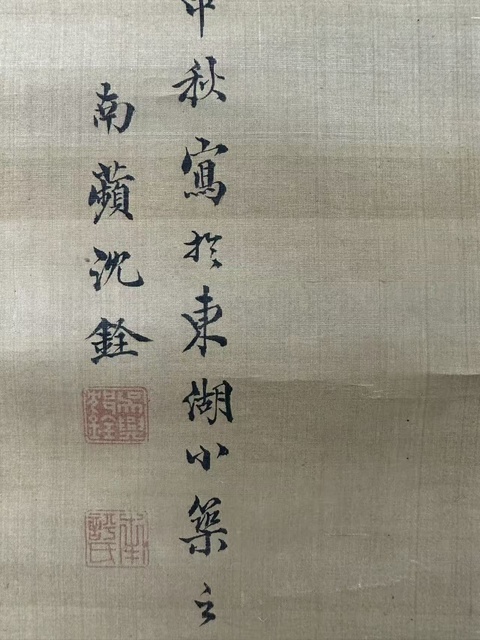 中秋寫於東湖小築之
南蘋沈銓